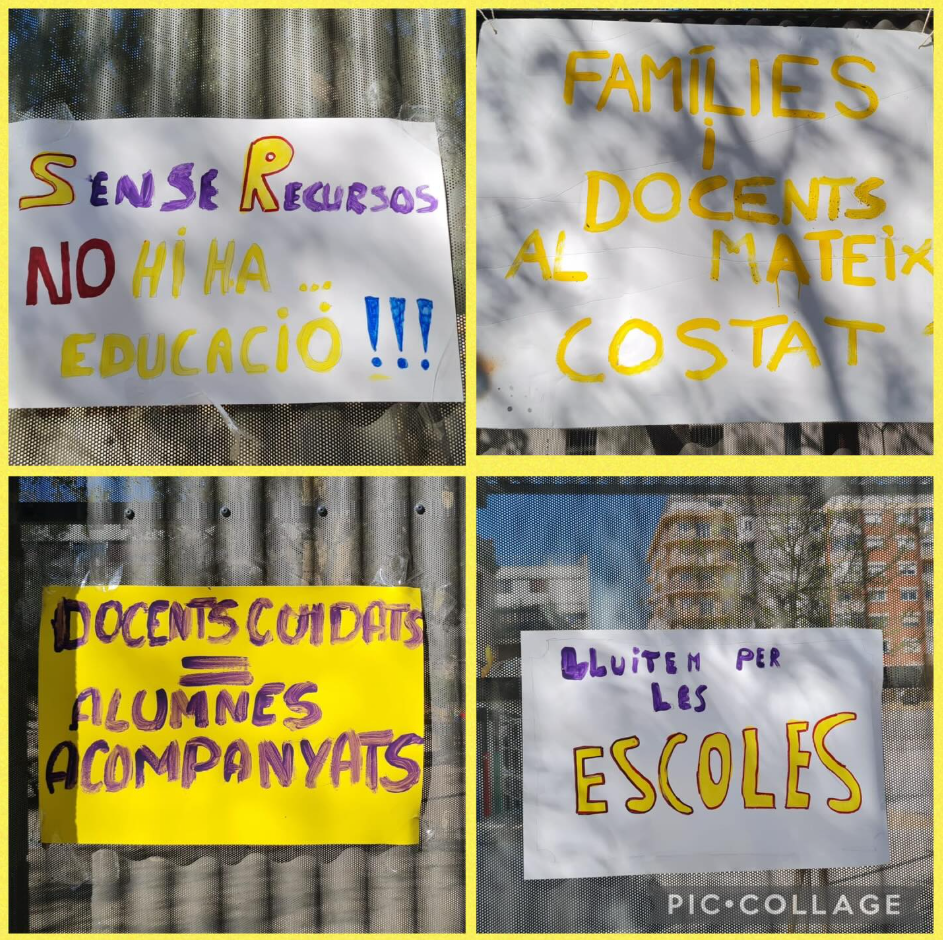 SENSE RECURSOS
NO HI HA ...
EDUCACIÓ !!!
FAMÍLIES
i
DOCENTS
AL MATEIX
COSTAT
DOCENTS CUIDATS
=
ALUMNES
ACOMPANYATS
LLUITEM PER
LES
ESCOLES
PIC•COLLAGE